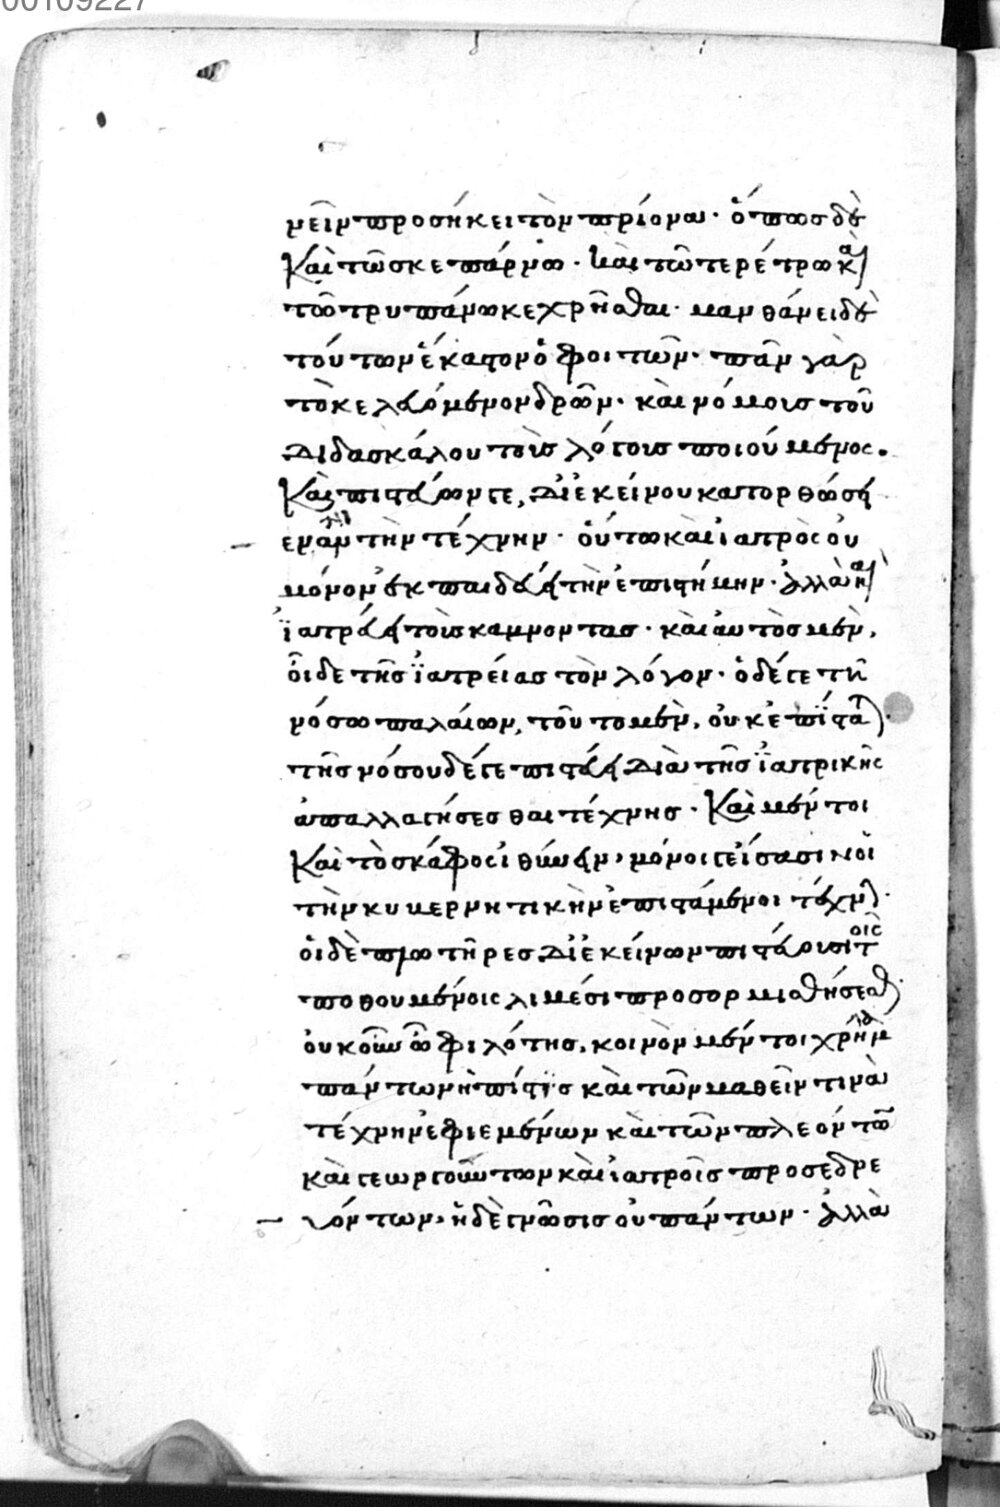 00109227
νεῖν προσήκει τὸν πρίονα· ὅπως δὲ
καὶ τῶ σκεπάρνω· καὶ τῶ τερέτρω κ(αὶ)
τῶ τρυπάνω κεχρῆσθαι· μανθάνει δὲ
τούτων ἕκαστον ὁ φοιτῶν· πᾶν γὰρ
τὸ κελευόμενον δρῶν· καὶ νόμοις τοῦ
διδασκάλου τοῖς λόγοις ποιούμενος.
καὶ πιστεύων γε, δι' ἐκείνου κατορθώσειν
ἐν αὐτῆ τὴν τέχνην· οὕτω καὶ ἰατρὸς οὐ
μόνον ἐκπαιδεύει τὴν ἐπιστήμην· ἀλλὰ καὶ
ἰατρεύει τοὺς κάμνοντας· καὶ αὐτὸς μὲν,
οἶδε τῆς ἰατρείας τὸν λόγον· ὁ δέ γε τῆ
νόσω παλαίων, τοῦτο μὲν, οὐκ ἐπίσταται·
τῆς νόσου δέ γε πιστεύει διὰ τῆς ἰατρικῆς
ἀπαλλαγήσεσθαι τέχνης· καὶ μέντοι
καὶ τὸ σκάφος ἰθύνειν, μόνοι γε ἴσασιν οἱ
τὴν κυβερνητικὴν ἐπιστάμενοι τέχνην·
οἱ δὲ πλωτῆρες δι' ἐκείνων πιστεύουσι τοῖς
ποθουμένοις λιμέσι προσορμισθήσεσθαι·
οὐκοῦν ὦ φιλότης, κοινὸν μέντοι χρῆμα
πάντων ἡ πίστις καὶ τῶν μαθεῖν τινὰ
τέχνην ἐφιεμένων καὶ τῶν πλεόντων
καὶ γεωργούντων καὶ ἰατροῖς προσεδρε
υόντων, ἡ δὲ γνῶσις οὐ πάντων· ἀλλὰ